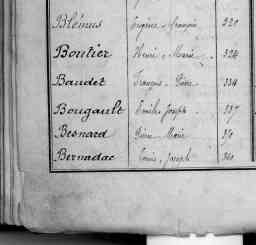 Blémus Eugène François 320
Boutier Henri Marie 324
Baudet François Pierre 334
Bougault Emile Joseph 337
Besnard Pierre Marie
Bernadac Louis Joseph